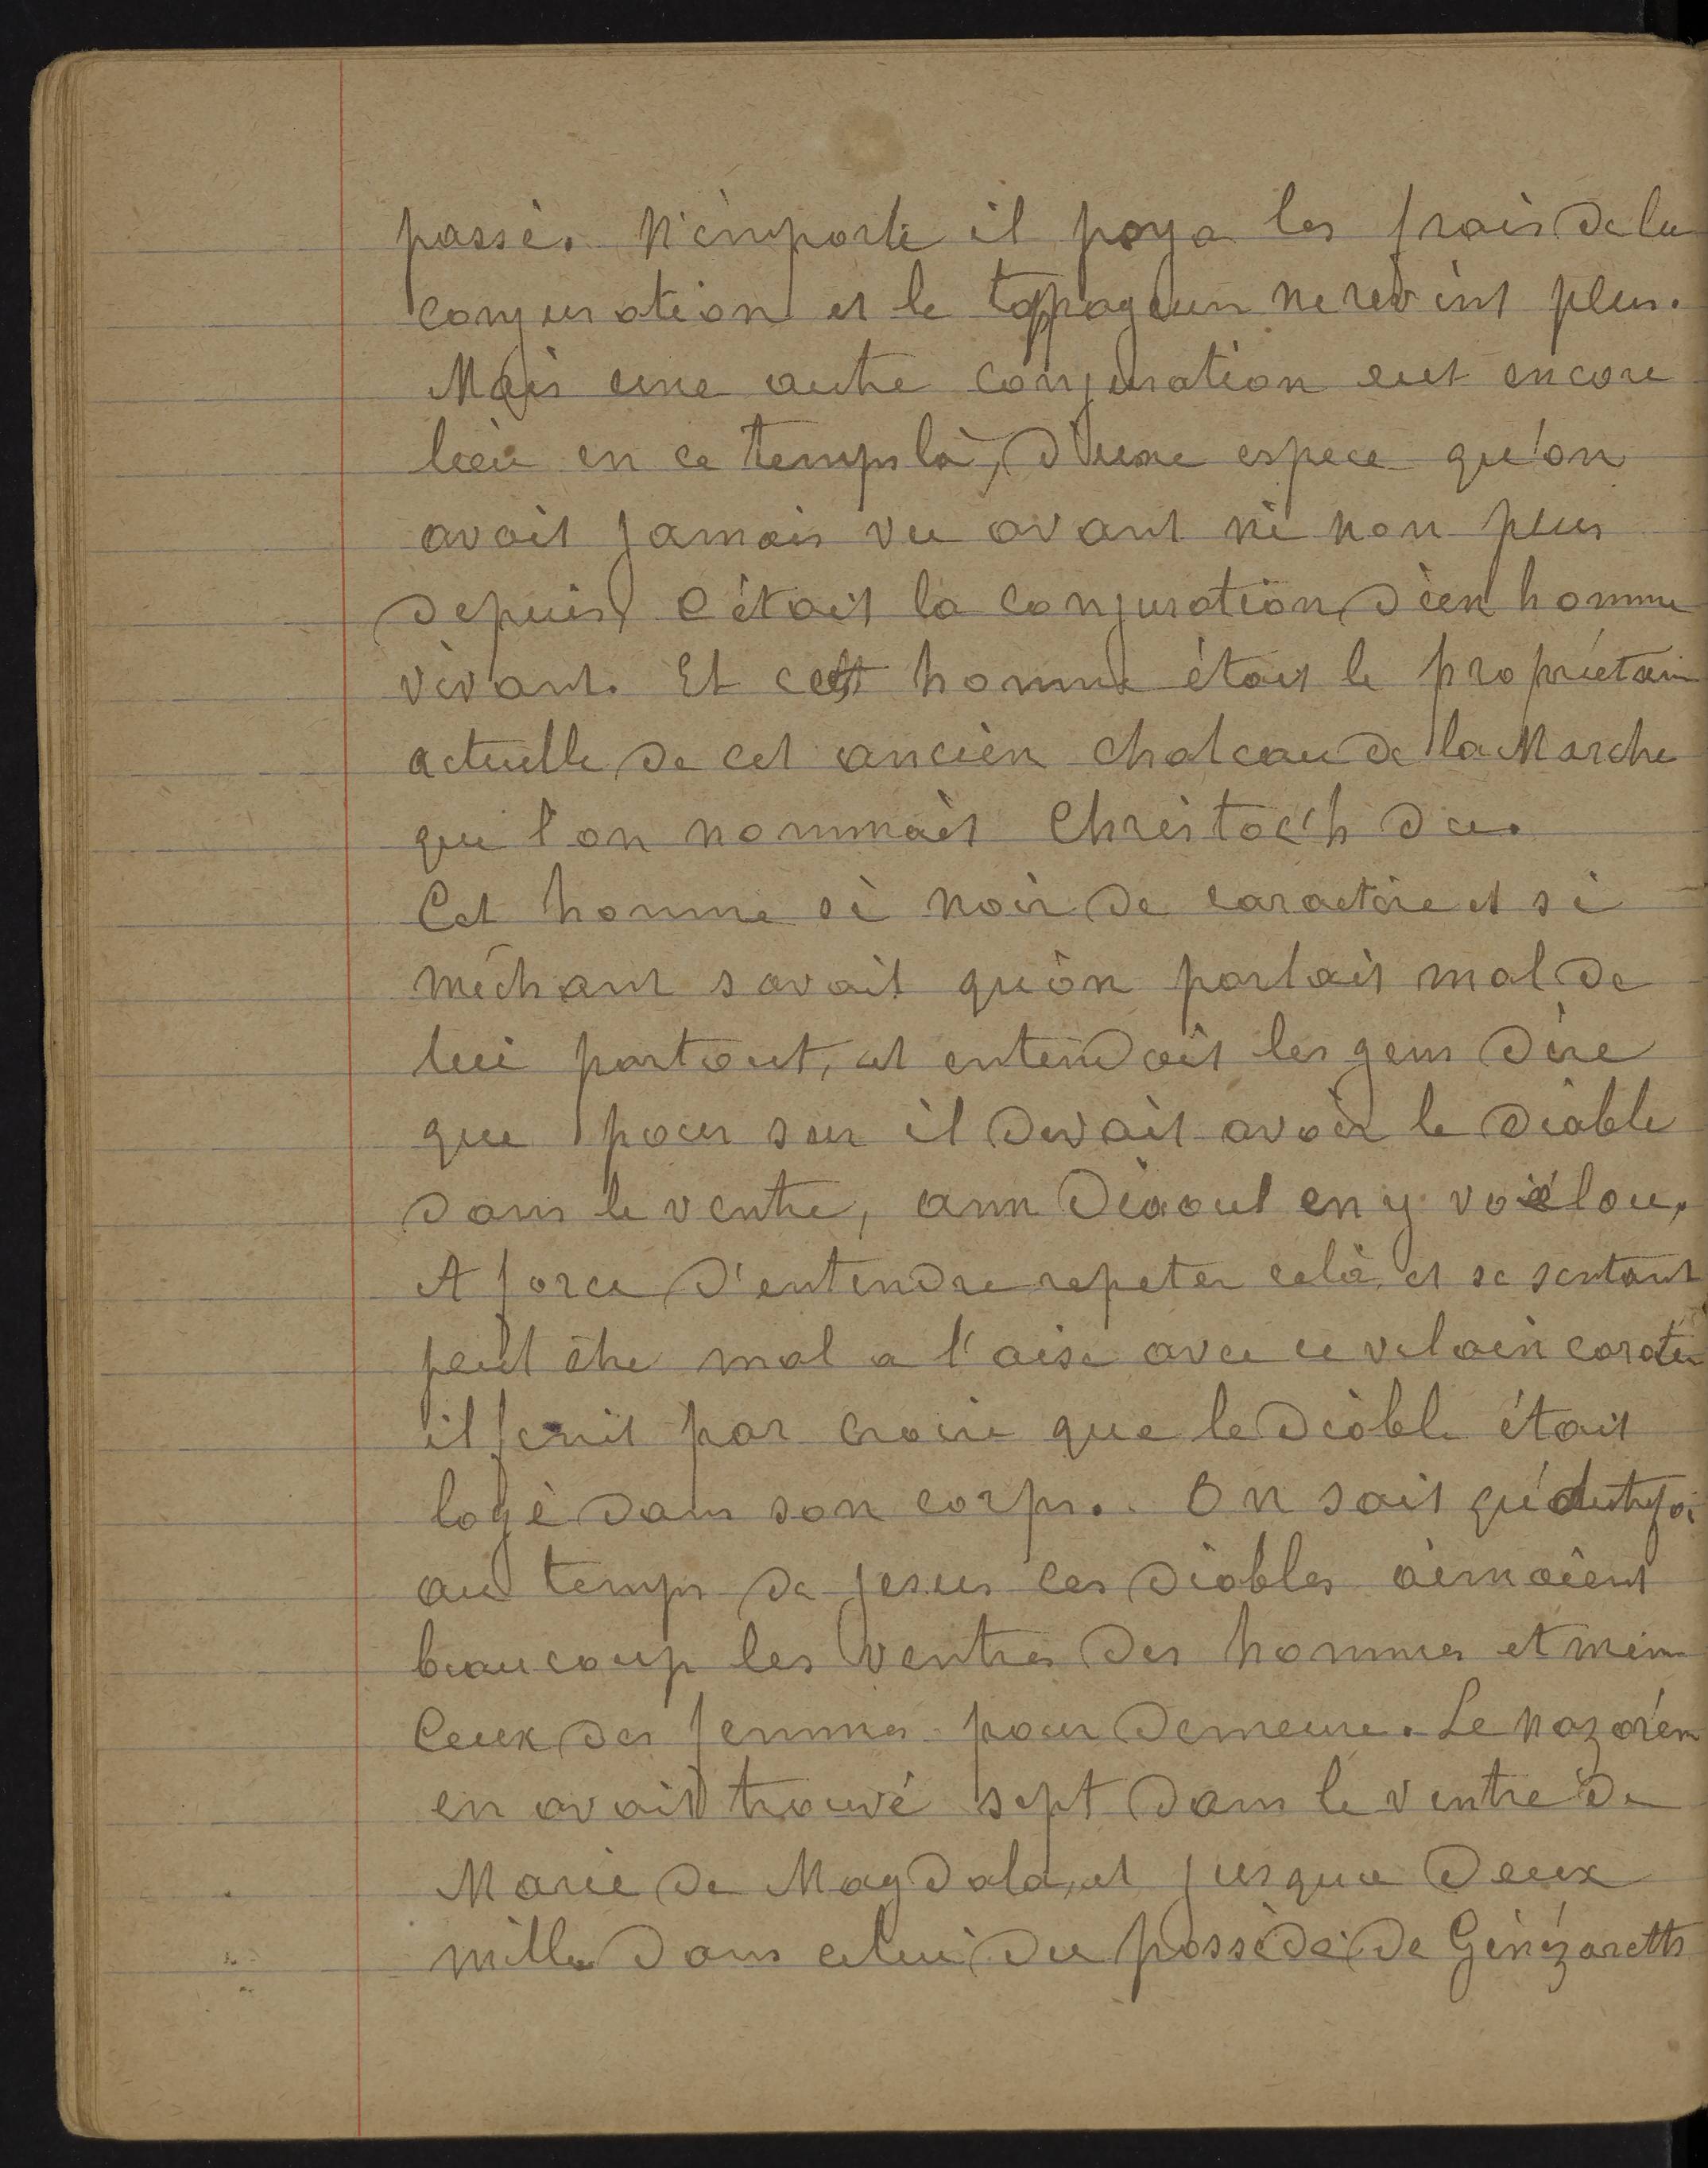 passé. N'importe il paya les frais de la
conjuration et le tappageur ne revint plus.
Mais une autre conjuration eut encore
lieu en ce temps là, d'une espece qu'on
avait jamais vu avant ni non plus
depuis, c'était la conjuration d'un homme
vivant. Et cet homme était le propriétaire
actuelle de cet ancien chateau de la Marche
que l'on nommait Christoc'h du.
Cet homme si noir de caractère et si
méchant savait qu'on parlait mal de
lui partout, et entendait les gens dire
que pour sur il devait avoir le diable
dans le ventre, ann diaoul en y voëlou.
A force d'entendre repeter celà, et se sentant
peut être mal a l'aise avec ce vilain caratè
il finit par croire que le diable était
logé dans son corps. On sait qu'autrefoi
au temps de jesus les diables aimaient
beaucoup les ventres des hommes et mêm
ceux des femmes pour demeure. Le nazaréen
en avait trouvé sept dans le ventre de
Marie de Magdala, et jusqua deux
mille dans celui du possédé de Génézareth